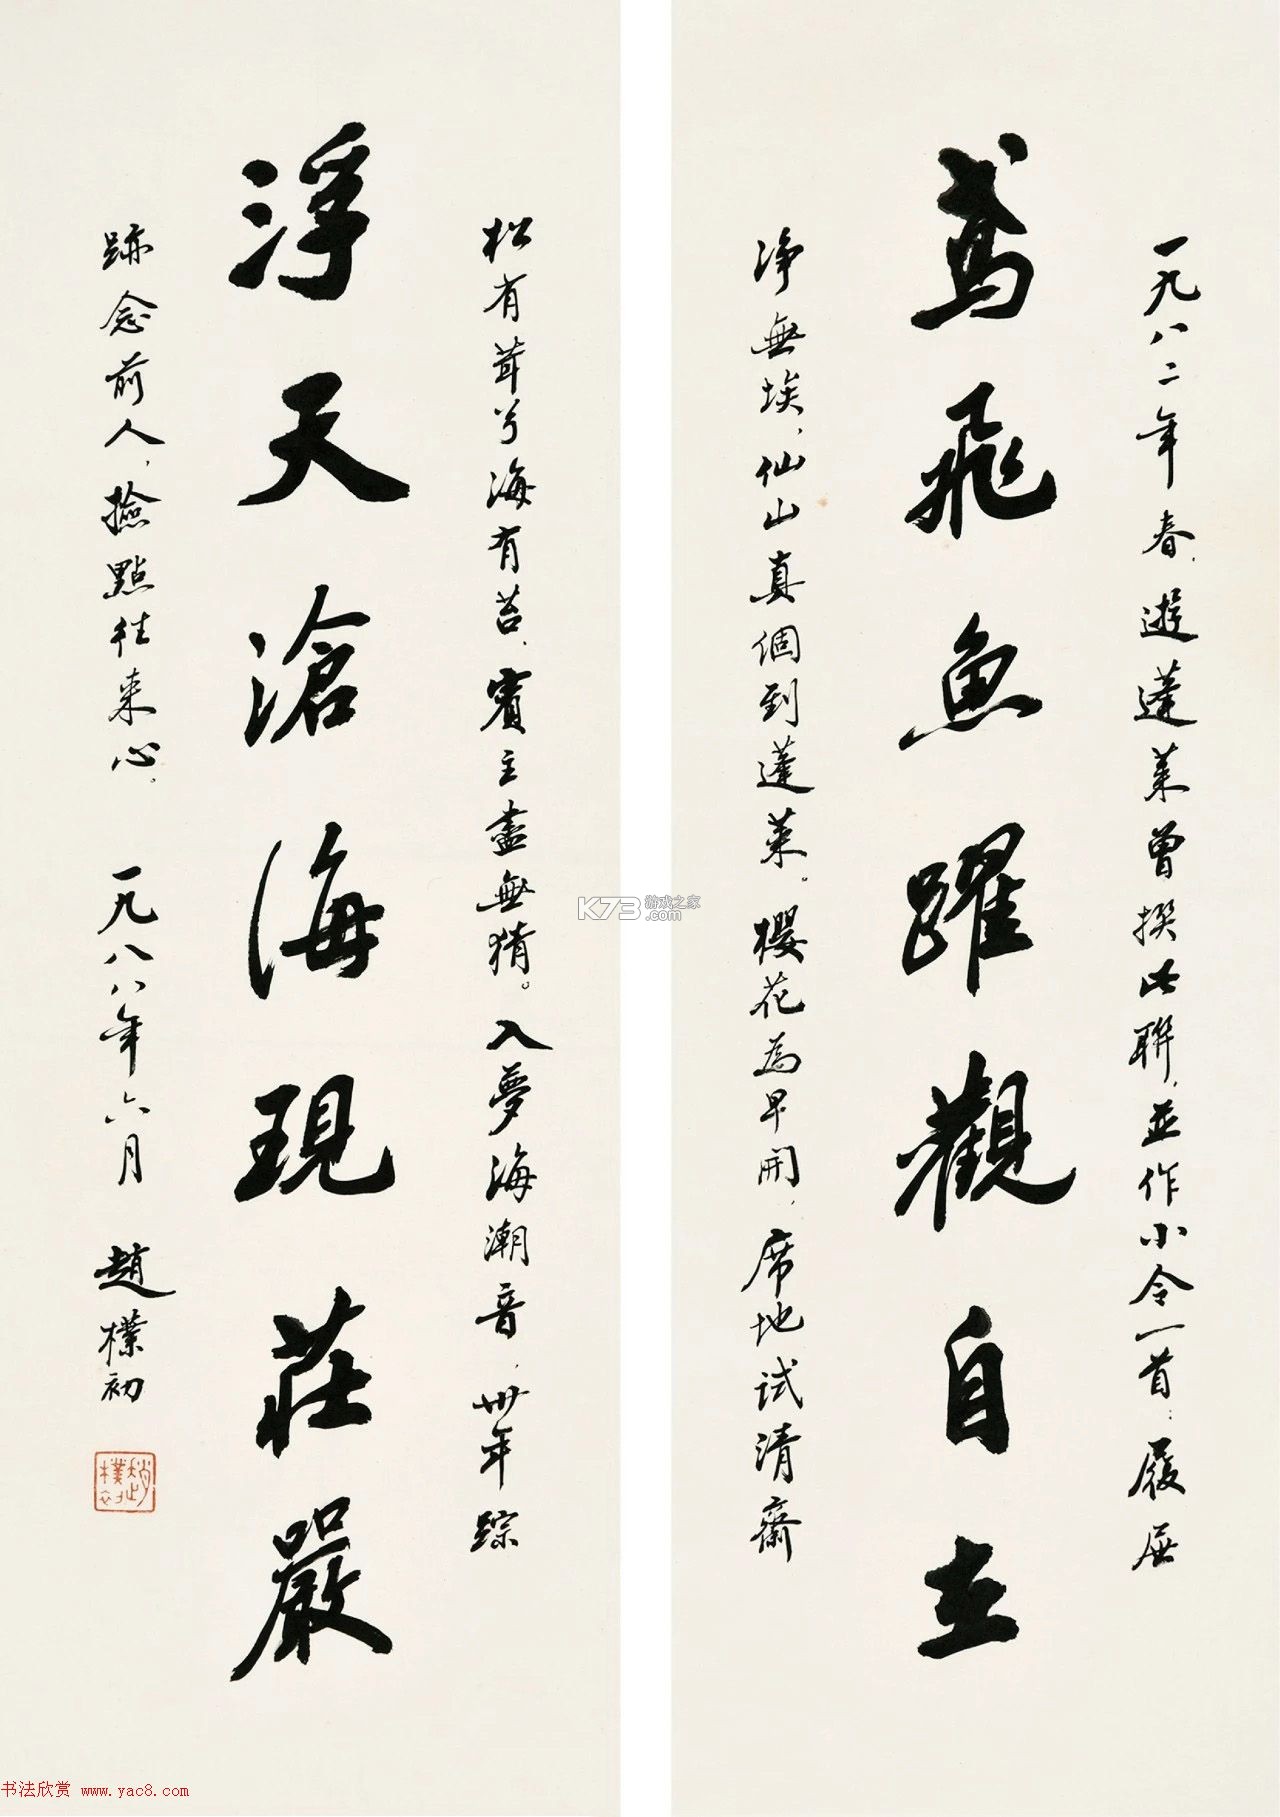 一九八二年春，遊蓬萊曾撰此聯，並作小令一首：履屐
鳶飛魚躍觀自在
净無埃，仙山真個到蓬萊。櫻花為早開，席地試清齋
松有茸兮海有苔，賓主盡無猜。入夢海潮音，卅年踪
浮天滄海現莊嚴
跡念前人，撿點往来心。一九八八年六月 趙樸初
趙樸初
K73 游戏之家 .com
书法欣赏 www.yac8.com